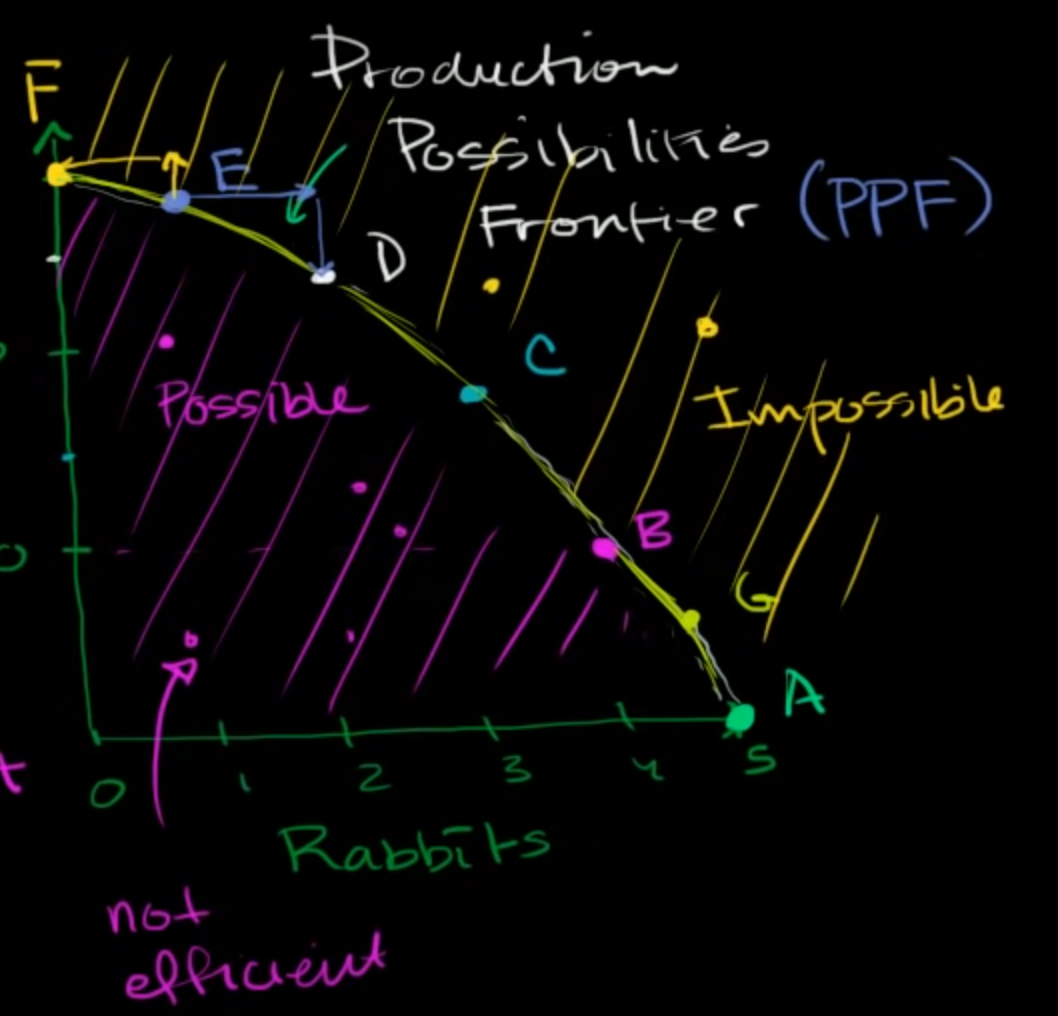 F
Production
Possibilities
Frontier (PPF)
E
D
C
Possible
Impossible
B
0
G
A
t
0 1 2 3 4 5
Rabbits
not
efficient